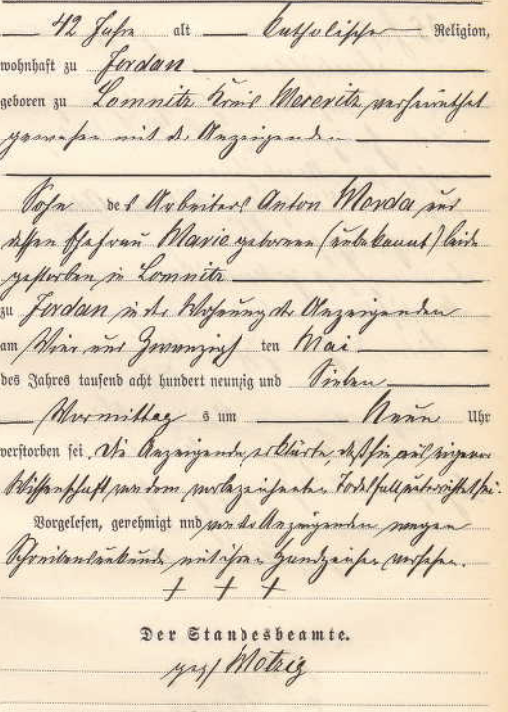 42 Jahre alt katholischer Religion,
wohnhaft zu Jordan
geboren zu Lomnitz Kreis Meseritz, verheirathet
gewesen mit der Anzeigenden
Sohn des Arbeiters Anton Morda und
dessen Ehefrau Marie geborenen (unbekannt) beide
gestorben in Lomnitz
zu Jordan in der Wohnung der Anzeigenden
am Vier und Zwanzigs ten Mai
des Jahres tausend acht hundert neunzig und Sieben
Vormittag s um Neun Uhr
verstorben sei. Die Anzeigende erklärte, daß sie aus eigener
Wissenschaft von dem vorbezeichneten Todesfall unterrichtet sei.
Vorgelesen, genehmigt und von der Anzeigenden wegen
Schreibensunkunde mit ihren Handzeichen versehen.
+ + +
Der Standesbeamte.
gez/ Motzig